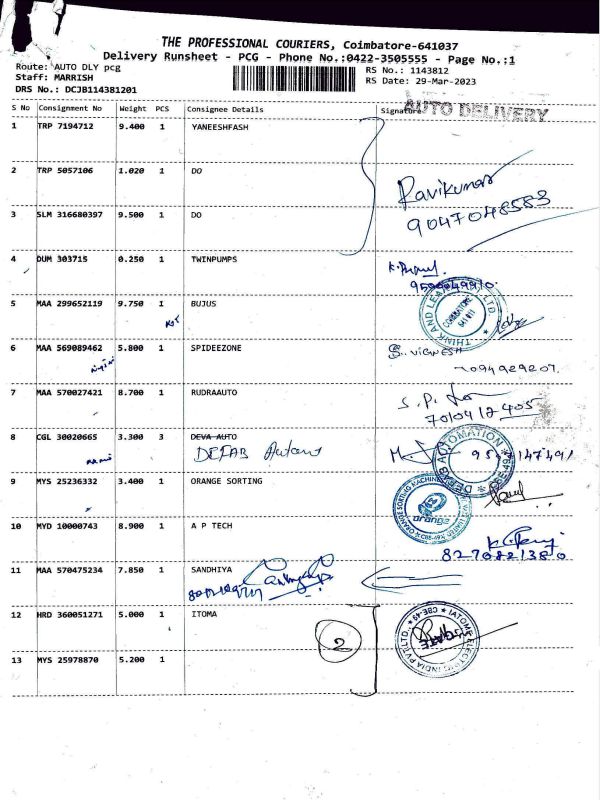 THE PROFESSIONAL COURIERS, Coimbatore-641037
Delivery Runsheet - PCG - Phone No.:0422-3505555 - Page No.:1
Route: AUTO DLY pcg
Staff: MARRISH
DRS No.: DCJB114381201
RS No.: 1143812
RS Date: 29-Mar-2023
S No Consignment No Weight PCS Consignee Details Signature
AUTO DELIVERY
1 TRP 7194712 9.400 1 YANEESHFASH
2 TRP 5057106 1.020 1 DO
Ravikumar
9047048583
3 SLM 316680397 9.500 1 DO
4 DUM 303715 0.250 1 TWINPUMPS
5 MAA 299652119 9.750 1 BUJUS
THINK AND LEARN PVT. LTD
COIMBATORE
641 011
6 MAA 569089462 5.800 1 SPIDEEZONE
S. VIGNESH
7 MAA 570027421 8.700 1 RUDRAAUTO
8 CGL 30020665 3.300 3 DEVA AUTO
DEFAB Automs
DEFAB AUTOMATION
CBE-49
9 MYS 25236332 3.400 1 ORANGE SORTING
ORANGE SORTING MACHINES
orange
10 MYD 10000743 8.900 1 A P TECH
8270821380
11 MAA 570475234 7.850 1 SANDHIYA
12 HRD 360051271 5.000 1 ITOMA
2
IATOME ELECTRIC INDIA PVT LTD., CBE-49
13 MYS 25978870 5.200 1